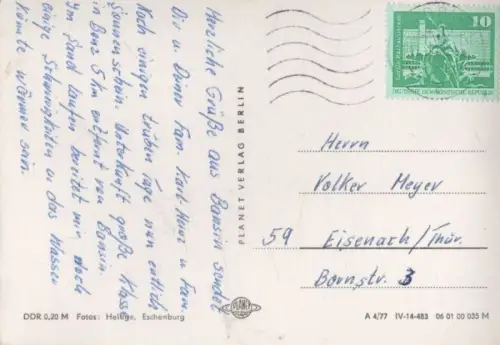 Herzliche Grüße aus Bansin sendet
Dir u. Deiner Fam. Karl-Heinz u. Fam.
Nach einigen trüben Tage nun endlich
Sonnenschein. Unterkunft große Klasse
in Benz 5 km entfernt von Bansin.
Im Sand laufen bereitet mir noch
einige Schwierigkeiten u. das Wasser
könnte wärmer sein.
PLANET VERLAG BERLIN
10
DEUTSCHE DEMOKRATISCHE REPUBLIK
Herrn
Volker Meyer
59 Eisenach/Thür.
Bornstr. 3
DDR 0,20 M Fotos: Hellige, Eschenburg
PLANET
A 4/77 IV-14-483 06 01 00 035 M